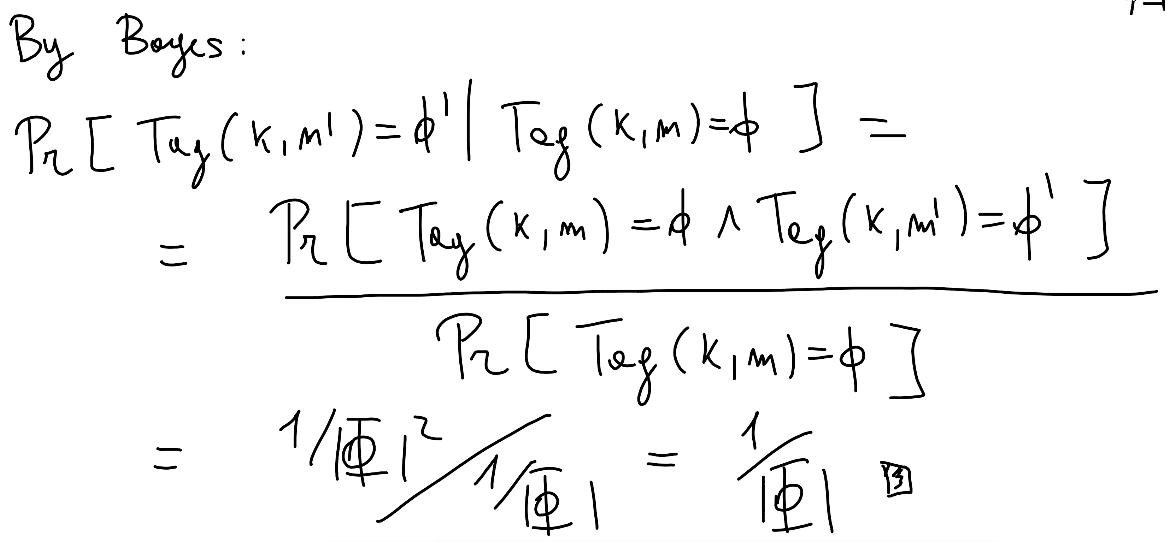 By Bayes:
Pr[ Tag(K,m')=ϕ' | Tag(K,m)=ϕ ] =
= Pr[ Tag(K,m)=ϕ ∧ Tag(K,m')=ϕ' ]
Pr[ Tag(K,m)=ϕ ]
= 1/|Φ|² / 1/|Φ| = 1/|Φ|